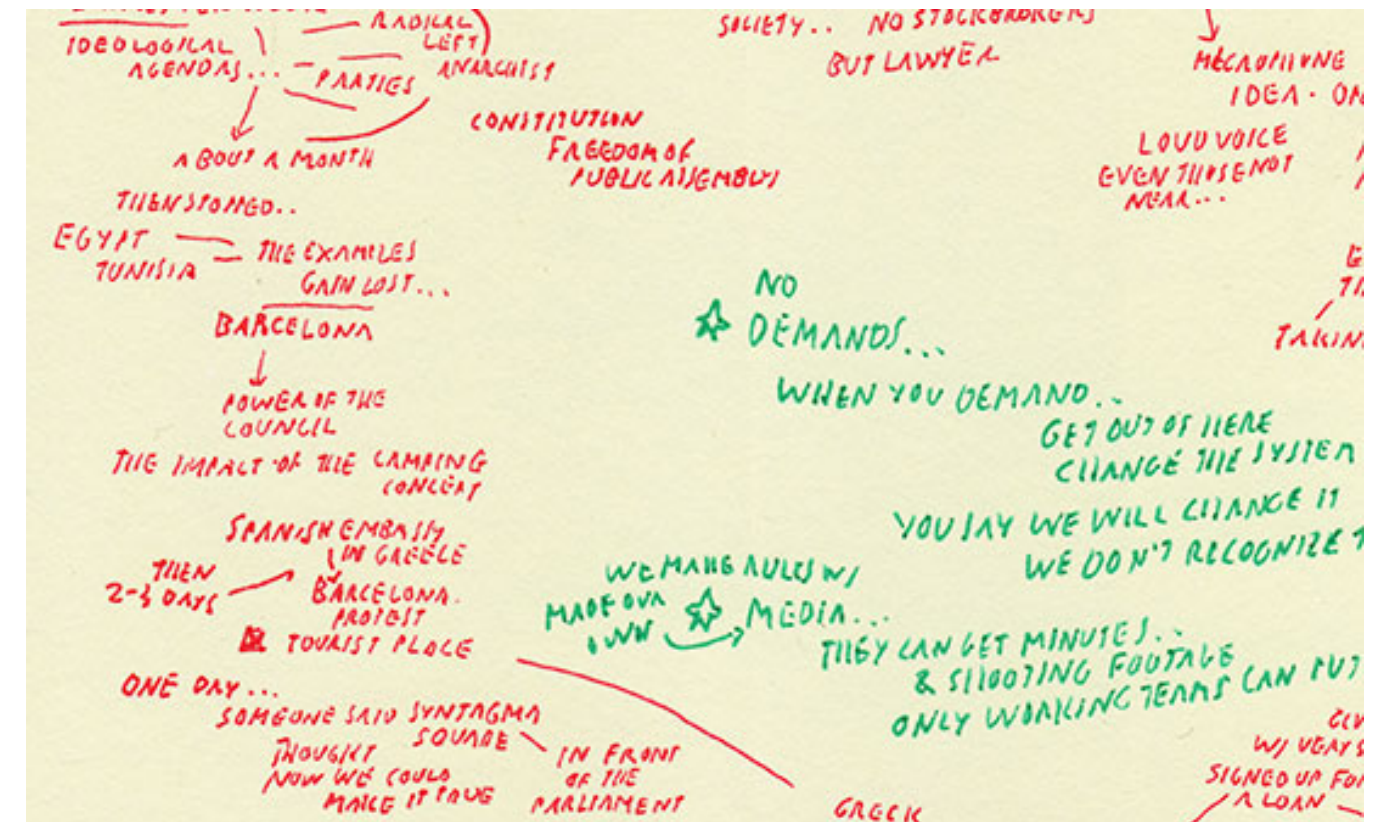 IDEOLOGICAL
AGENDAS...
RADICAL
LEFT
ANARCHIST
PARTIES
ABOUT A MONTH
THEN STOPPED..
EGYPT
TUNISIA
THE EXAMPLES
GAIN LOST...
BARCELONA
POWER OF THE
COUNCIL
THE IMPACT OF THE CAMPING
CONCEPT
SPANISH EMBASSY
IN GREECE
THEN
2-3 DAYS
BARCELONA.
PROTEST
TOURIST PLACE
ONE DAY...
SOMEONE SAID SYNTAGMA
SQUARE
THOUGHT
NOW WE COULD
MAKE IT TRUE
IN FRONT
OF THE
PARLIAMENT
CONSTITUTION
FREEDOM OF
PUBLIC ASSEMBLY
SOCIETY.. NO STOCKBROKERS
BUT LAWYER
MICROPHONE
IDEA. ON
LOUD VOICE
EVEN THOSE NOT
NEAR...
NO
DEMANDS...
WHEN YOU DEMAND..
GET OUT OF HERE
CHANGE THE SYSTEM
YOU SAY WE WILL CHANGE IT
WE DON'T RECOGNIZE
WE MAKE RULES W/
MADE OUR
OWN
MEDIA...
THEY CAN GET MINUTES..
& SHOOTING FOOTAGE
ONLY WORKING TEAMS CAN PUT
TAKIN
W/ VERY
SIGNED UP FOR
A LOAN
GREEK